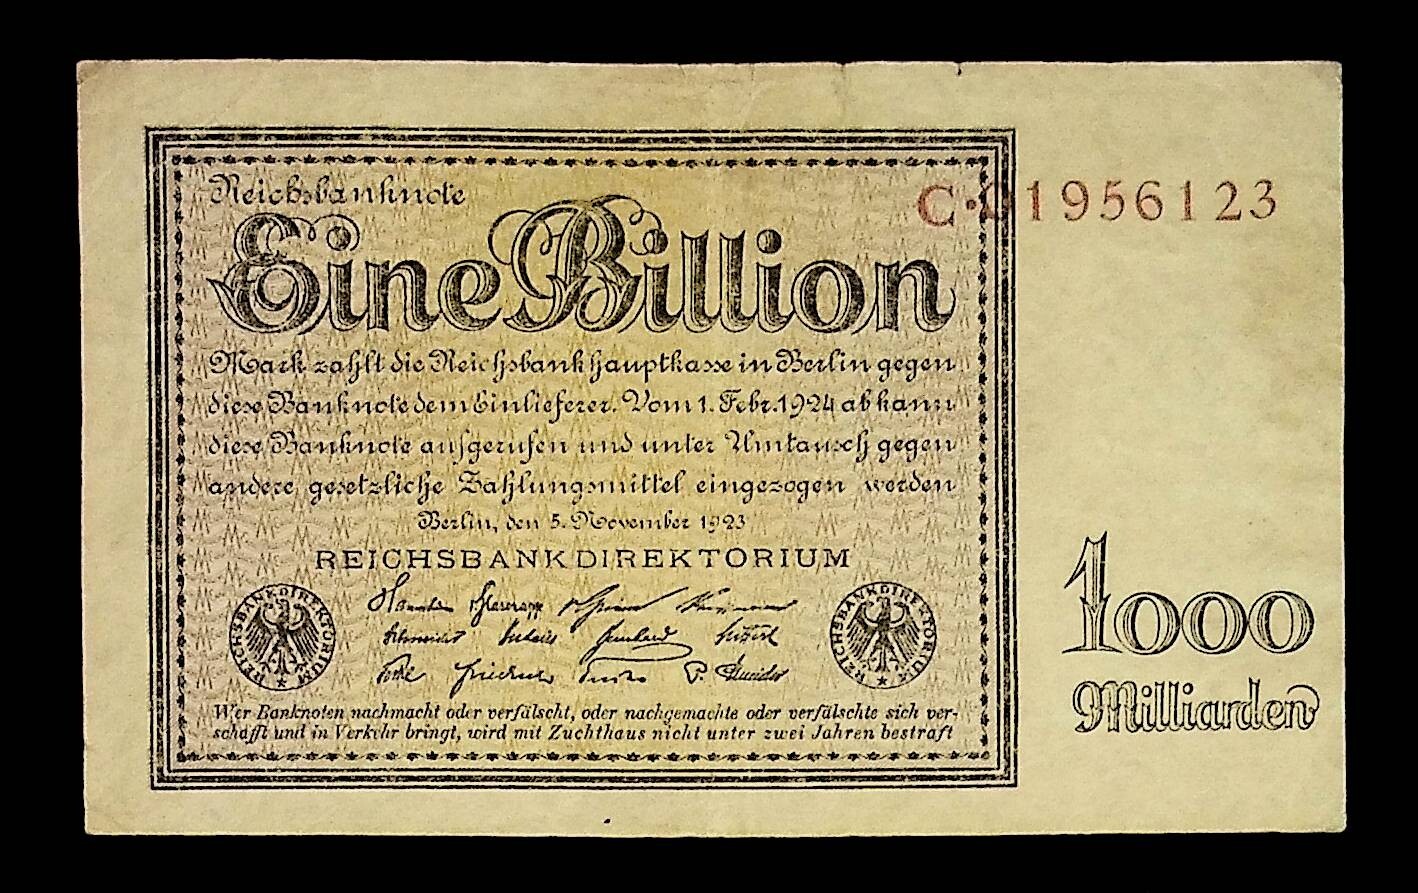 Reichsbanknote
C·01956123
Eine Billion
Mark zahlt die Reichsbankhauptkasse in Berlin gegen
diese Banknote dem Einlieferer. Vom 1. Febr. 1924 ab kann
diese Banknote aufgerufen und unter Umtausch gegen
andere gesetzliche Zahlungsmittel eingezogen werden
Berlin, den 5. November 1923
REICHSBANKDIREKTORIUM
REICHSBANKDIREKTORIUM
REICHSBANKDIREKTORIUM
Wer Banknoten nachmacht oder verfälscht, oder nachgemachte oder verfälschte sich ver-
schafft und in Verkehr bringt, wird mit Zuchthaus nicht unter zwei Jahren bestraft
1000
Milliarden